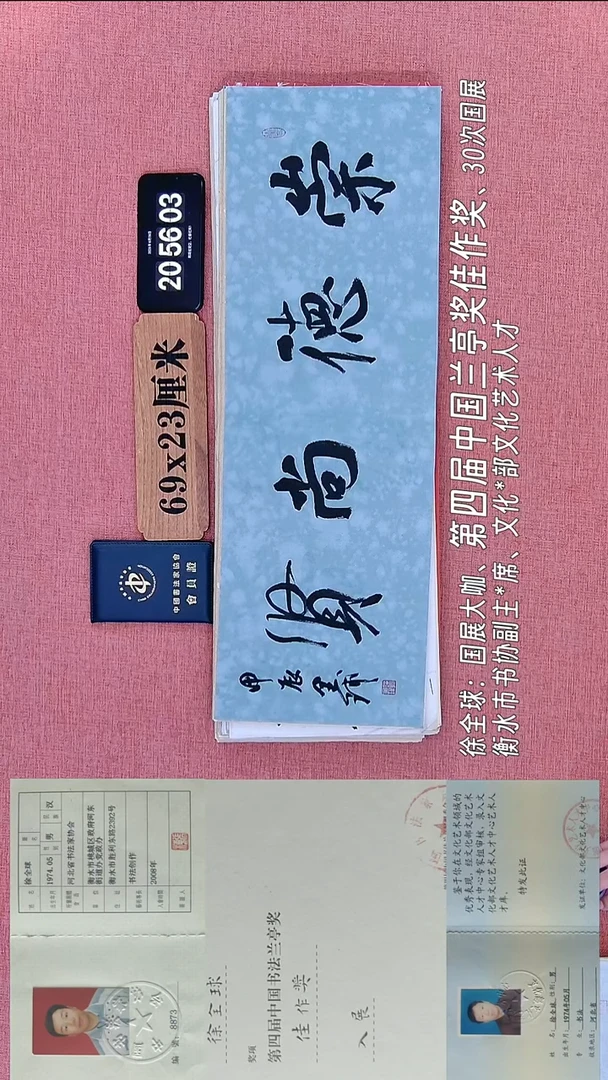 崇德尚賢
甲辰
20 56 03
69x23厘米
中國書法家協會
會員證
徐全球：国展大咖、第四届中国兰亭奖佳作奖、30次国展
衡水市书协副主*席、文化*部文化艺术人才
徐全球
1974.05
男
汉
河北省书法家协会
衡水市桃城区政府河东
街道办党政办
衡水市胜利东路2202号
书法创作
2008年
编 号: 8873
徐全球
奖项
第四届中国书法兰亭奖
佳作奖
入展
鉴于你在文化艺术领域的
优秀表现，经文化部文化艺术
人才中心专家组审核，录入文
化部文化艺术人才中心艺术人
才库。
特发此证
发证单位：文化部文化艺术人才中心
姓名：徐全球 性别：男
出生年月：1974年05月
专业：书法
报资地区：河北省